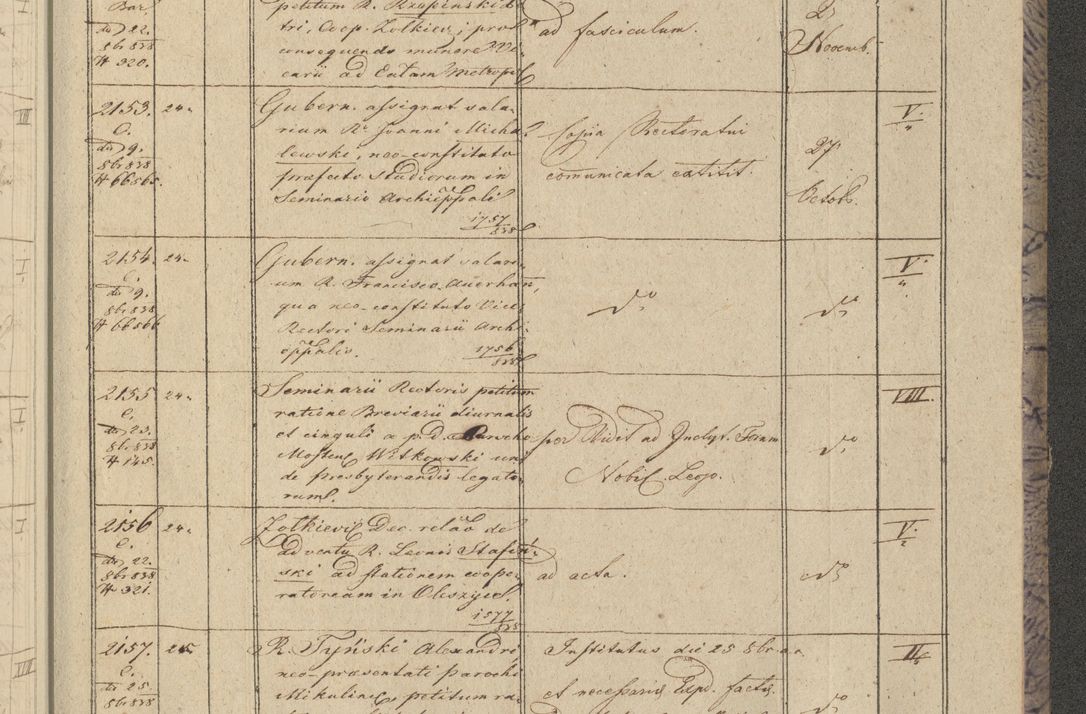 Bar,
dto 22.
8br 838
N 320.
petitum R. Rzepinski
tri, Coop. Zolkiev, pro
consequendo munere Vi-
carii ad Eccl̄am Metropol
ad fasciculum.
2
Novemb.
2153. 24.
C.
dto 9.
8br 838
N 66565.
Gubern. assignat sala-
rium R. Joanni Micha-
lewski, neo-constituto
præfecto Studiorum in
Seminario Archieppali
1757/838
Copia Rectoratui
comunicata extitit.
27
Octob.
V.
2154. 24.
C.
dto 9.
8br 838
N 66566
Gubern. assignat salari-
um R. Francisco Auerhan,
qua neo-constituto Vice
Rectori Seminarii Archi-
eppalis.
1756/838
dto
dto
V.
2155 24.
C.
dto 23.
8br 838
N 145.
Seminarii Rectoris petitum
ratione Breviarii diurnalis
et cinguli a p. d. Parocho
Mosten Witkowski uni
de presbyterandis legato-
rum.
per Vidit ad Inclyt. Forum
Nobil. Leop.
dto
VIII.
2156 24.
C.
dto 22.
8br 838
N 321.
Zolkievi Dec. relāo de
adventu R. Leonis Stafiń-
ski ad stationem coope-
ratoream in Oleszyce.
1577/838
ad acta.
dto
V./2
2157. 25
C.
dto 25.
8br 838
R. Tyński Alexandri
neo-præsentati parochi
Mikulince petitum ra-
Institutus die 25 8br a.
et necessaria Exped. facta
dto
II